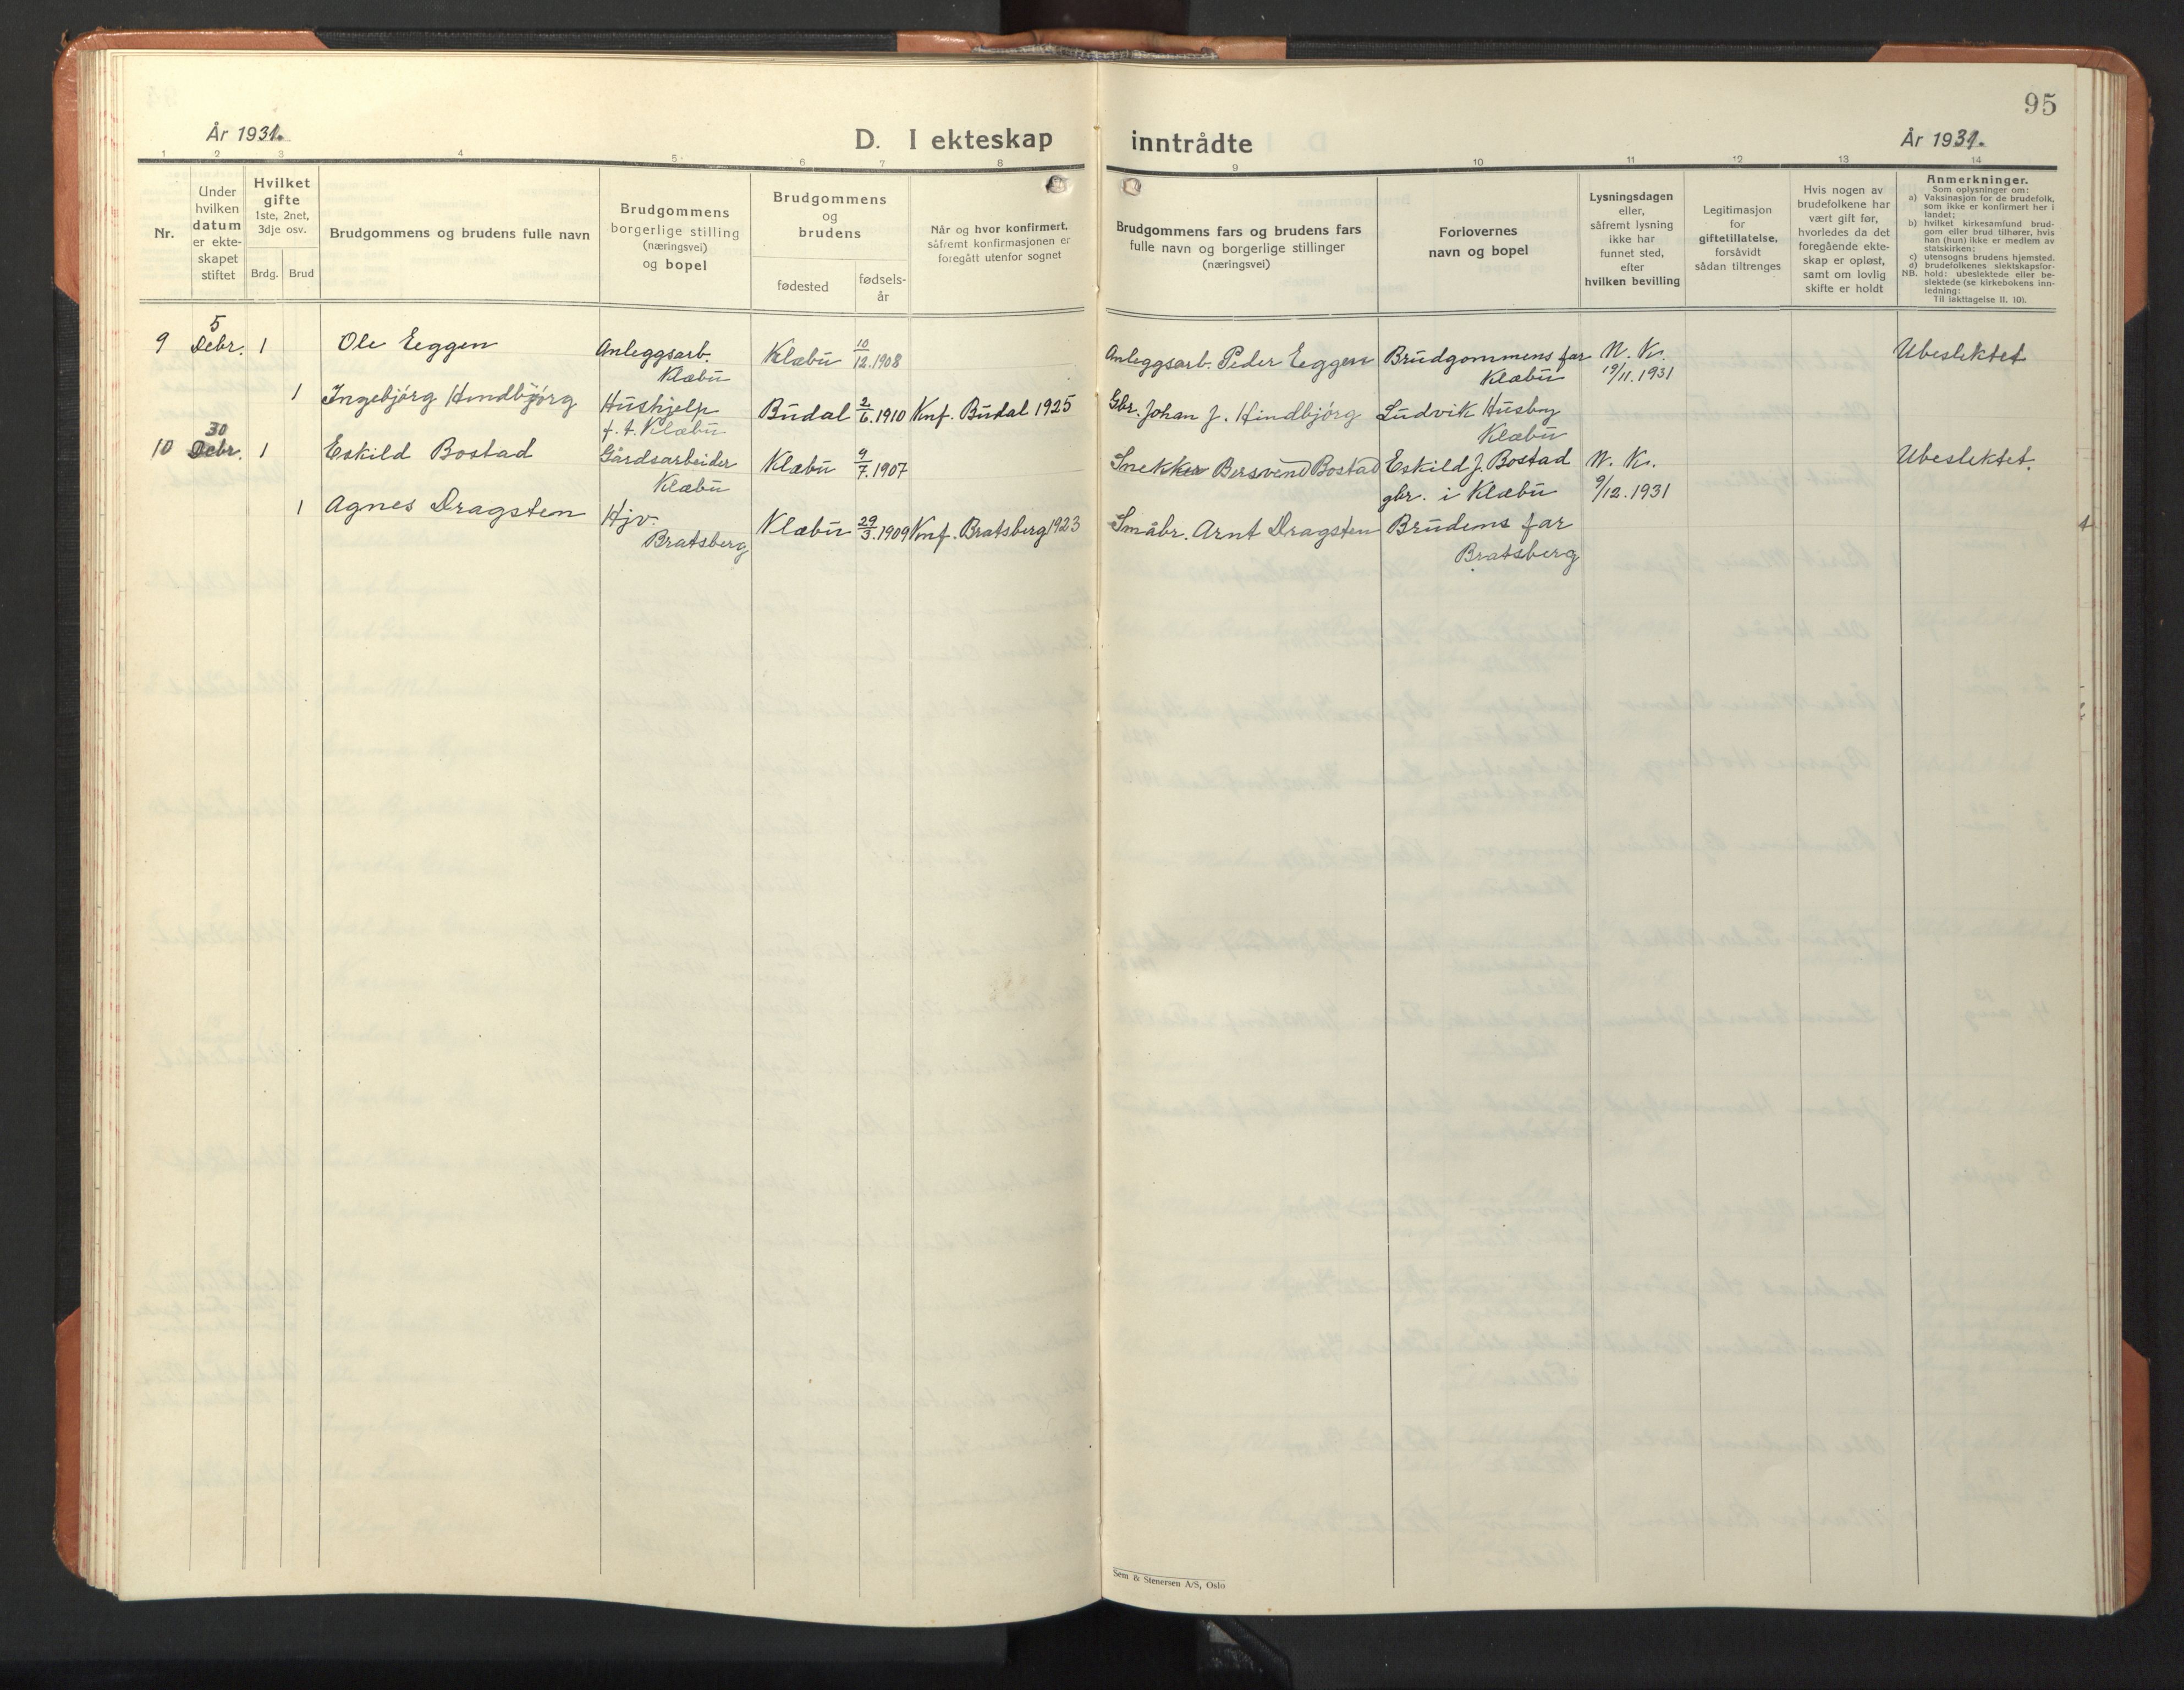 95
År 1931.
D. I ekteskap inntrådte
År 1931.
1 2 3 4 5 6 7 8 9 10 11 12 13 14
Nr.
Under
hvilken
datum
er ekte-
skapet
stiftet
Hvilket
gifte
1ste, 2net,
3dje osv.
Brdg. Brud
Brudgommens og brudens fulle navn
Brudgommens
borgerlige stilling
(næringsvei)
og bopel
Brudgommens
og
brudens
fødested
fødsels-
år
Når og hvor konfirmert,
såfremt konfirmasjonen er
foregått utenfor sognet
Brudgommens fars og brudens fars
fulle navn og borgerlige stillinger
(næringsvei)
Forlovernes
navn og bopel
Lysningsdagen
eller,
såfremt lysning
ikke har
funnet sted,
efter
hvilken bevilling
Legitimasjon
for
giftetillatelse,
forsåvidt
sådan tiltrenges
Hvis nogen av
brudefolkene har
vært gift før,
hvorledes da det
foregående ekte-
skap er opløst,
samt om lovlig
skifte er holdt
Anmerkninger.
Som oplysninger om:
a) Vaksinasjon for de brudefolk,
som ikke er konfirmert her i
landet;
b) hvilket kirkesamfund brud-
gom eller brud tilhører, hvis
han (hun) ikke er medlem av
statskirken;
c) utensogns brudens hjemsted.
d) brudefolkenes slektskapsfor-
NB. hold: ubeslektede eller be-
slektede (se kirkebokens inn-
ledning:
Til iakttagelse II. 10).
5
9 Debr. 1 Ole Eggen Anleggsarb. Klæbu 10/12.1908 Anleggsarb. Peder Eggen Brudgommens far N. Kr. Ubeslektet
Klæbu Klæbu 19/11.1931
1 Ingebjörg Hindbjörg Hushjelp Budal 2/6.1910 Knf. Budal 1925 Gbr. Johan J. Hindbjörg Ludvik Husby
f. t. Klæbu Klæbu
30
10 Debr. 1 Eskild Bostad Gårdsarbeider Klæbu 9/7.1907 Snekker Bersvend Bostad Eskild J. Bostad N. Kr. Ubeslektet.
Klæbu gbr. i Klæbu 9/12.1931
1 Agnes Dragsten Hjv. Klæbu 29/3.1909 Knf. Bratsberg 1923 Småbr. Arnt Dragsten Brudens far
Bratsberg Bratsberg
Sem & Stenersen A/S, Oslo